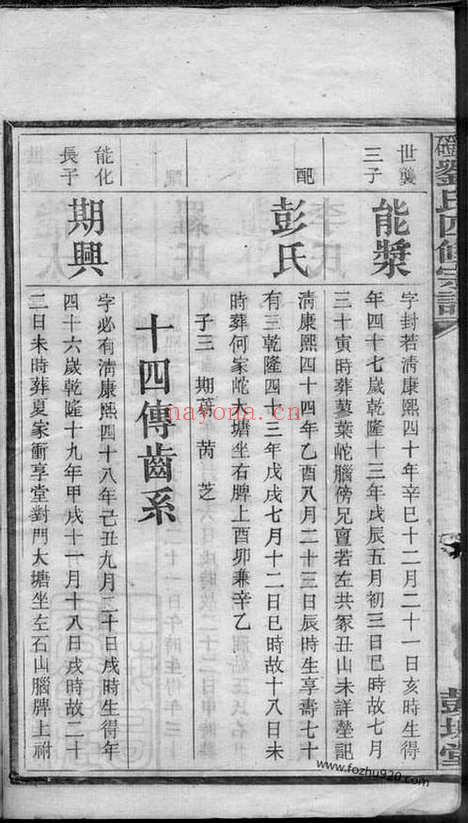 劉氏四修宗譜
彭城堂
世襲
三子
能槳
字封若清康熙四十年辛巳十二月二十一日亥時生得
年四十七歲乾隆十三年戊辰五月初三日巳時故七月
三十寅時葬蓼葉岮腦傍兄亶若左共冢丑山未詳塋記
配
彭氏
清康熙四十四年乙酉八月二十三日辰時生享壽七十
有三乾隆四十三年戊戌七月十二日巳時故十八日未
時葬何家岮大塘坐右脾上酉卯兼辛乙
子三 期萼 芮 芝
十四傳齒系
能化
長子
期興
字必有清康熙四十八年己丑九月二十日戌時生得年
四十六歲乾隆十九年甲戌十一月十八日戌時故二十
二日未時葬夏家衝享堂對門大塘坐左石山腦脾上祔
nayona.cn
www.fozhu920.com